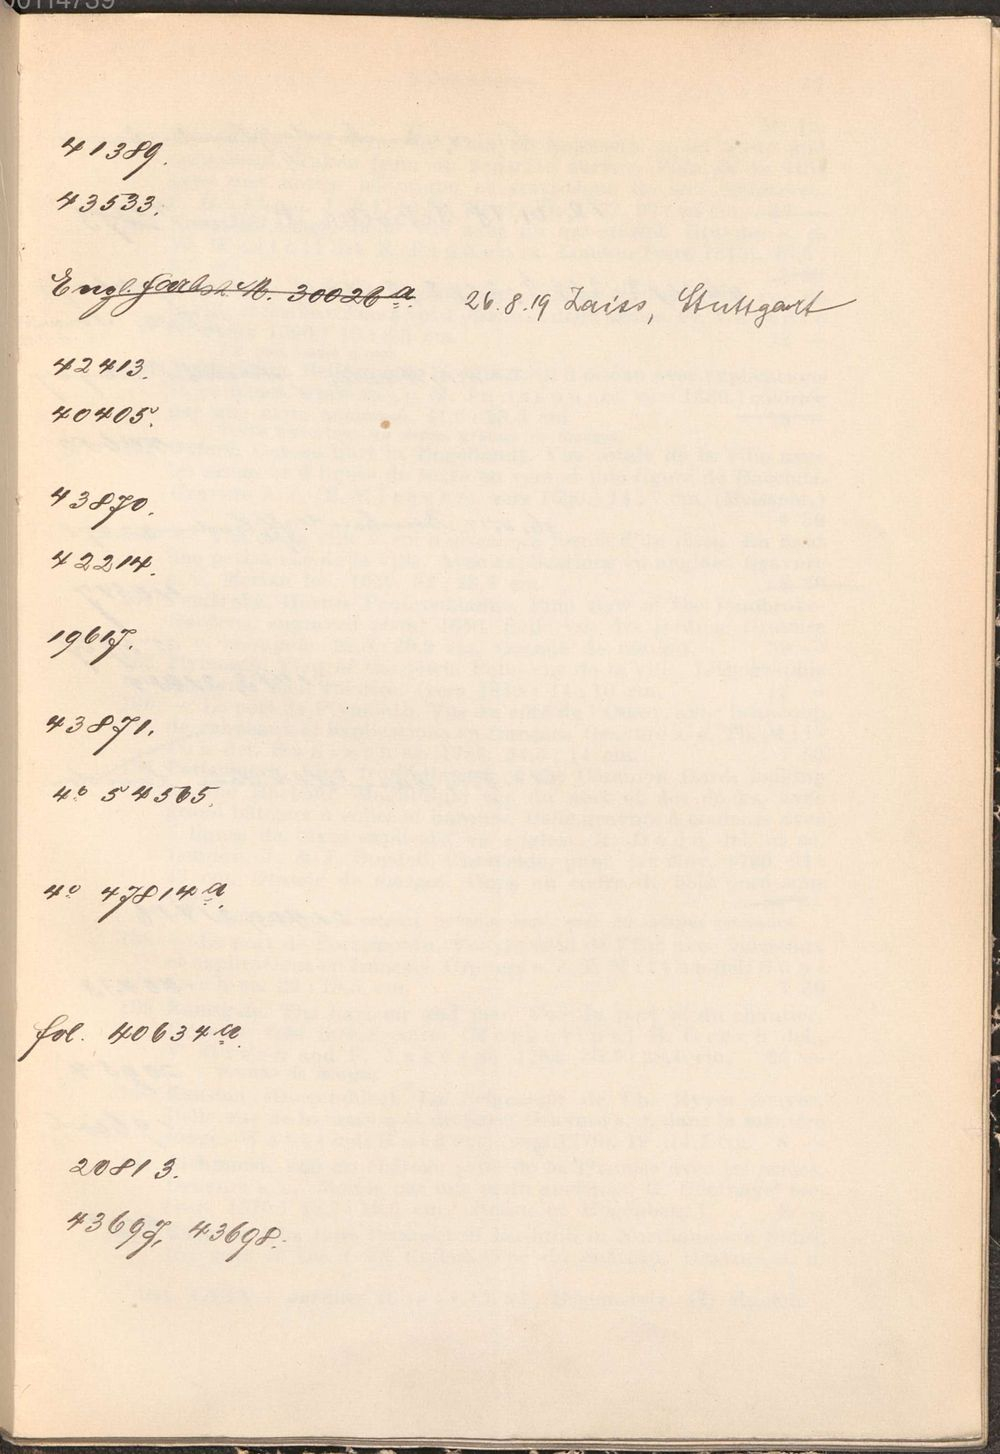 00114739
41389.
43533.
Engl. farbst. M. 30026 a. 26.8.19 Zaiss, Stuttgart
42413.
40405.
43870.
42214.
19617.
43871.
4° 54565.
4° 47814 a.
fol. 40634 a.
20813.
43697, 43698.